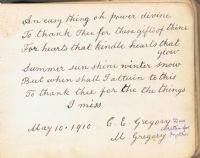 An easy thing oh power divine
To thank Thee for these gifts of thine
For hearts that kindle hearts that
glow
Summer sun shine winter snow
But when shall I attain to this
To thank thee for the the things
I miss
May 10. 1910. C. E. Gregory
M Gregory